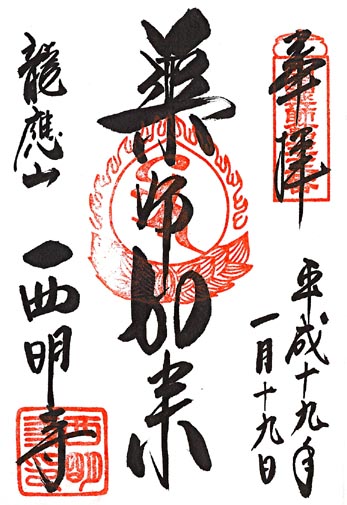 奉拝
平成十九年
一月十九日
薬師如来
龍應山
西明寺